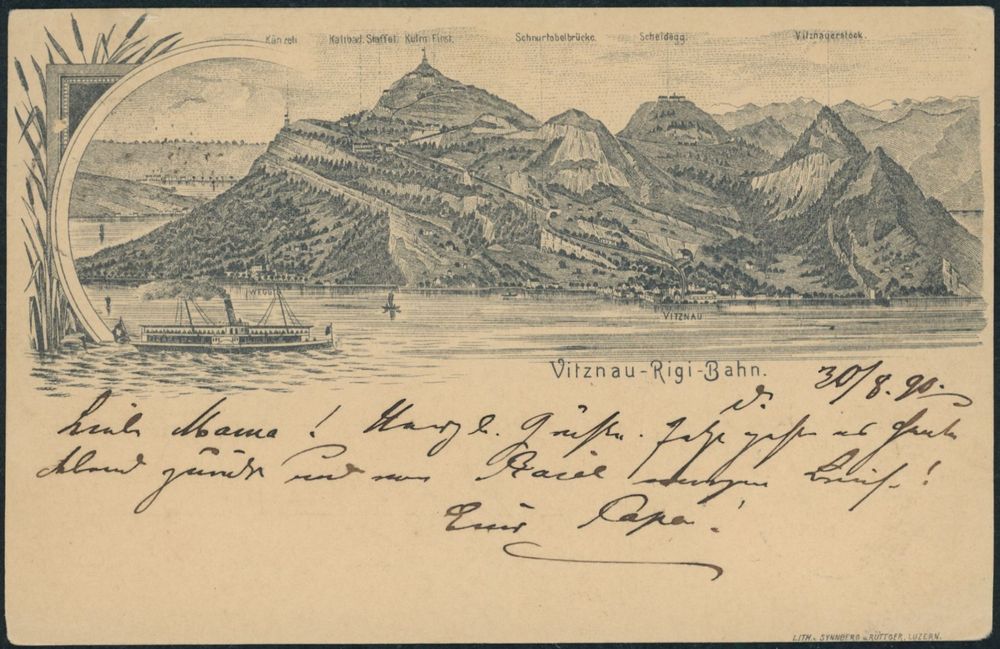 Känzeli Kaltbad. Staffel. Kulm. First. Schnurtobelbrücke. Scheidegg. Vitznauerstock.
WEGGIS
VITZNAU
Vitznau-Rigi-Bahn.
d. 30/8.90.
Liebe Mama! Herzl. Grüße. Jetzt gehts heute
Abend zurück und von Basel morgen Brief!
Euer Papa!
LITH. v. SYNNBERG u. RÜTTGER, LUZERN.